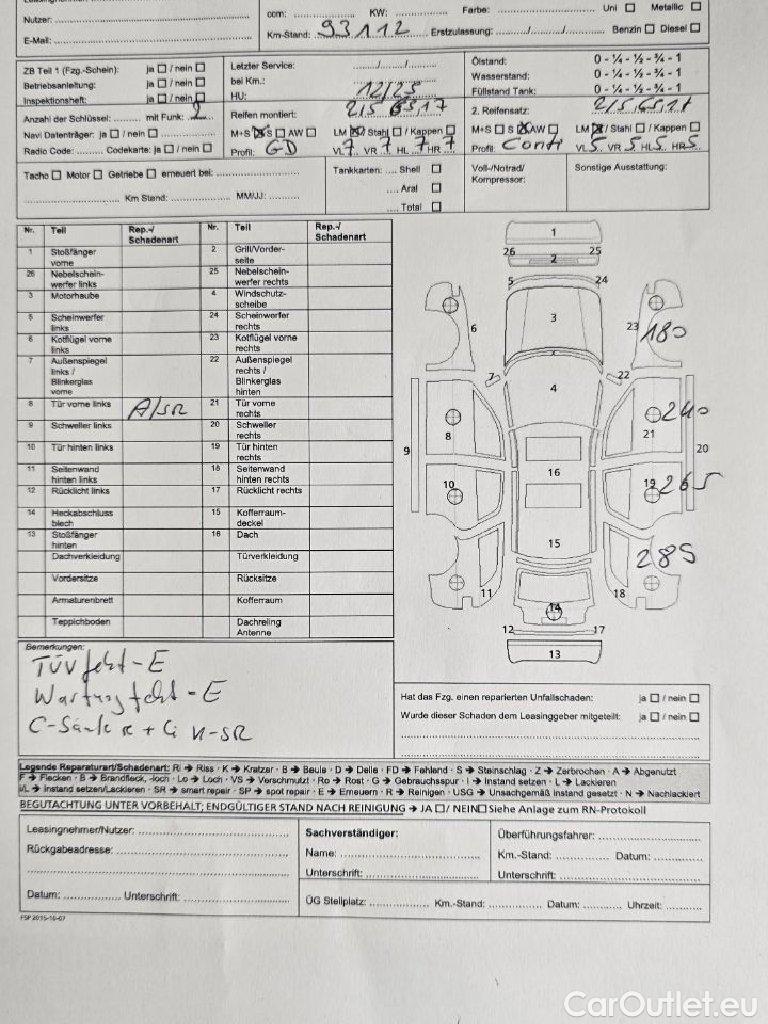 Nutzer:
ccm: KW: Farbe: Uni ☐ Metallic ☐
E-Mail: Km-Stand: 93112 Erstzulassung: ..../..../.... Benzin ☐ Diesel ☐
ZB Teil 1 (Fzg.-Schein): ja ☐ / nein ☐
Betriebsanleitung: ja ☐ / nein ☐
Inspektionsheft: ja ☐ / nein ☐
Anzahl der Schlüssel: mit Funk: 2
Navi Datenträger: ja ☐ / nein ☐
Radio Code: Codekarte: ja ☐ / nein ☐
Letzter Service: ..../..../....
bei Km.:
HU: 12/25
Reifen montiert: 215 65 17
M+S ☒ S ☐ AW ☐ LM ☒ / Stahl ☐ / Kappen ☐
Profil: GD VL 7 VR 7 HL 7 HR 7
Ölstand: 0 - ¼ - ½ - ¾ - 1
Wasserstand: 0 - ¼ - ½ - ¾ - 1
Füllstand Tank: 0 - ¼ - ½ - ¾ - 1
2. Reifensatz: 215, 65, 17
M+S ☐ S ☒ AW ☐ LM ☒ / Stahl ☐ / Kappen ☐
Profil: Conti VL 5 VR 5 HL 5 HR 5
Tacho ☐ Motor ☐ Getriebe ☐ erneuert bei:
Km Stand: MM/JJ:
Tankkarten: .... Shell ☐
.... Aral ☐
.... Total ☐
Voll-/Notrad/
Kompressor:
Sonstige Ausstattung:
Nr. Teil Rep.-/ Schadenart Nr. Teil Rep.-/ Schadenart
1 Stoßfänger vorne 2. Grill/Vorder-seite
26 Nebelschein-werfer links 25 Nebelschein-werfer rechts
3 Motorhaube 4 Windschutz-scheibe
5 Scheinwerfer links 24 Scheinwerfer rechts
6 Kotflügel vorne links 23 Kotflügel vorne rechts
7 Außenspiegel links / Blinkerglas vorne 22 Außenspiegel rechts / Blinkerglas hinten
8 Tür vorne links A/SR 21 Tür vorne rechts
9 Schweller links 20 Schweller rechts
10 Tür hinten links 19 Tür hinten rechts
11 Seitenwand hinten links 18 Seitenwand hinten rechts
12 Rücklicht links 17 Rücklicht rechts
14 Heckabschluss blech 15 Kofferraum-deckel
13 Stoßfänger hinten 16 Dach
Dachverkleidung Türverkleidung
Vordersitze Rücksitze
Armaturenbrett Kofferraum
Teppichboden Dachreling Antenne
1
26 25
2
5 24
3
6 23 180
7 22
4
8 21 240
9 20
16
10 19 265
15
285
11 18
14
12 17
13
Bemerkungen:
TÜV fehlt - E
Wartung fehlt - E
C-Säule re + li K-SR
Hat das Fzg. einen reparierten Unfallschaden: ja ☐ / nein ☐
Wurde dieser Schaden dem Leasinggeber mitgeteilt: ja ☐ / nein ☐
Legende Reparaturart/Schadenart: RI → Riss · K → Kratzer · B → Beule · D → Delle · FD → Fehlend · S → Steinschlag · Z → Zerbrochen · A → Abgenutzt
F → Flecken · B → Brandfleck, -loch · Lo → Loch · VS → Verschmutzt · Ro → Rost · G → Gebrauchsspur · I → Instand setzen · L → Lackieren
I/L → Instand setzen/Lackieren · SR → smart repair · SP → spot repair · E → Erneuern · R → Reinigen · USG → Unsachgemäß instand gesetzt · N → Nachlackiert
BEGUTACHTUNG UNTER VORBEHALT; ENDGÜLTIGER STAND NACH REINIGUNG → JA ☐ / NEIN ☐ Siehe Anlage zum RN-Protokoll
Leasingnehmer/Nutzer:
Rückgabeadresse:
Datum: Unterschrift:
Sachverständiger:
Name:
Unterschrift:
Überführungsfahrer:
Km.-Stand: Datum:
Unterschrift:
ÜG Stellplatz: Km.-Stand: Datum: Uhrzeit:
FSP 2015-10-07
CarOutlet.eu